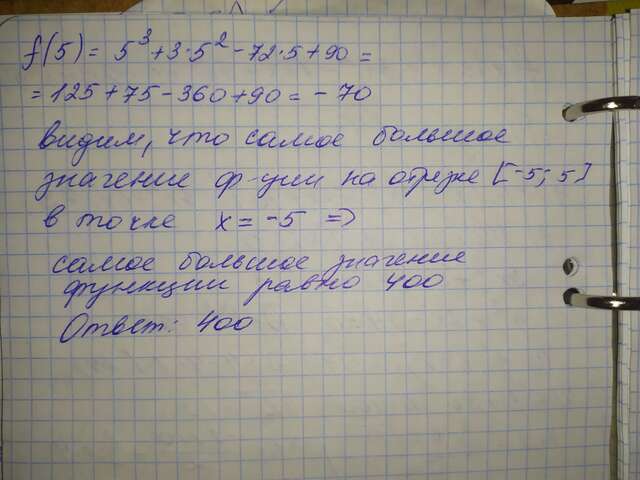 f(5) = 5³ + 3·5² - 72·5 + 90 =
= 125 + 75 - 360 + 90 = - 70
видим, что самое большое
значение ф-ции на отрезке [-5; 5]
в точке x = -5 =>
самое большое значение
функции равно 400
Ответ: 400